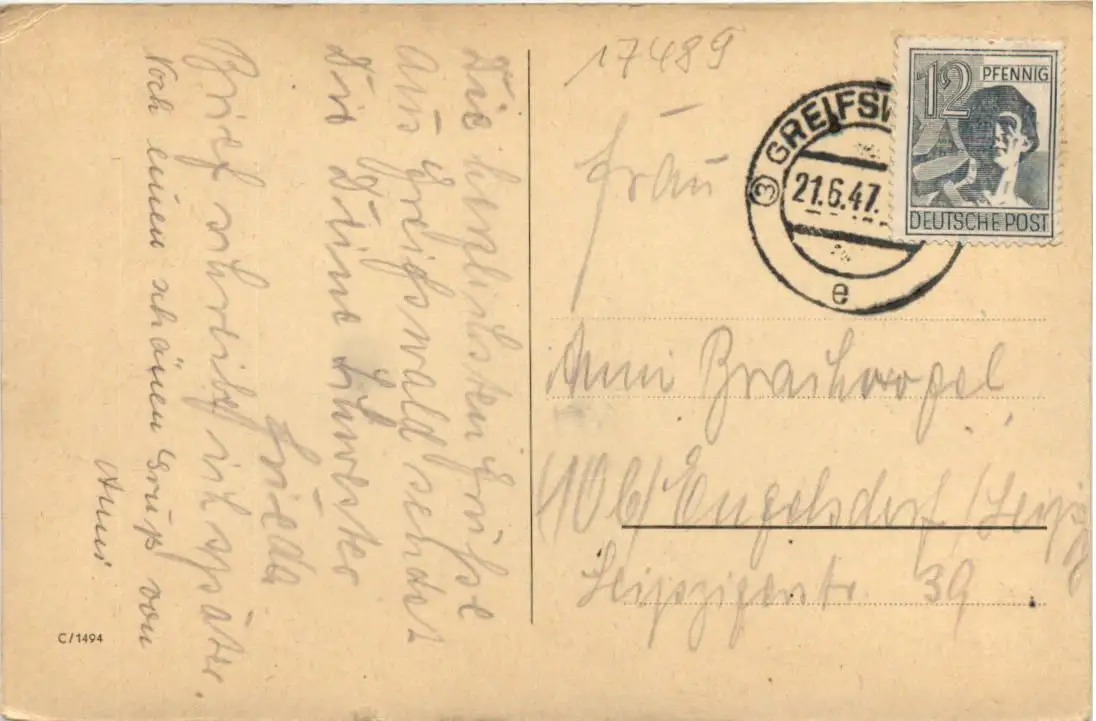 Die herzlichsten Grüße
aus Greifswald sendet
Dir Deine Schwester
Frieda
Brief schreibe ich später.
Noch einen schönen Gruß von
Anni
C/1494
17489
12 PFENNIG
DEUTSCHE POST
GREIFSW
21.6.47.
e
Frau
Anni
(10b) Engelsdorf / Leipzg
Leipzigerstr 39